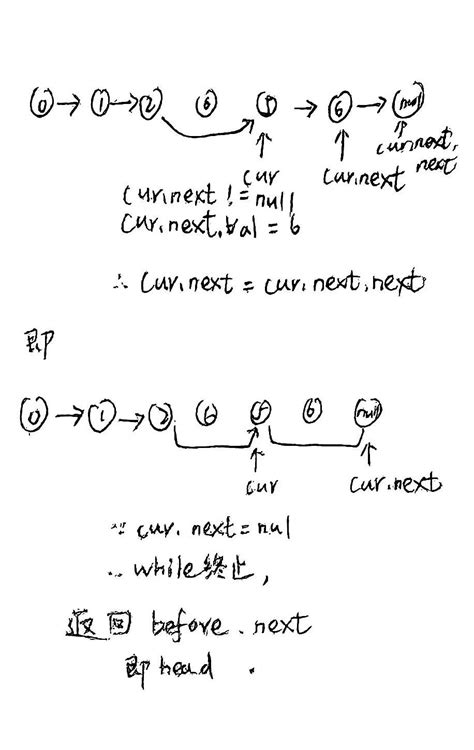 0 → 1 → 2 6 5 → 6 → null
cur cur.next cur.next.next
cur.next != null
cur.next.val = 6
∴ cur.next = cur.next.next
即
0 → 1 → 2 6 5 6 null
cur cur.next
∵ cur.next = nul
∴ while终止,
返回 before.next
即head.